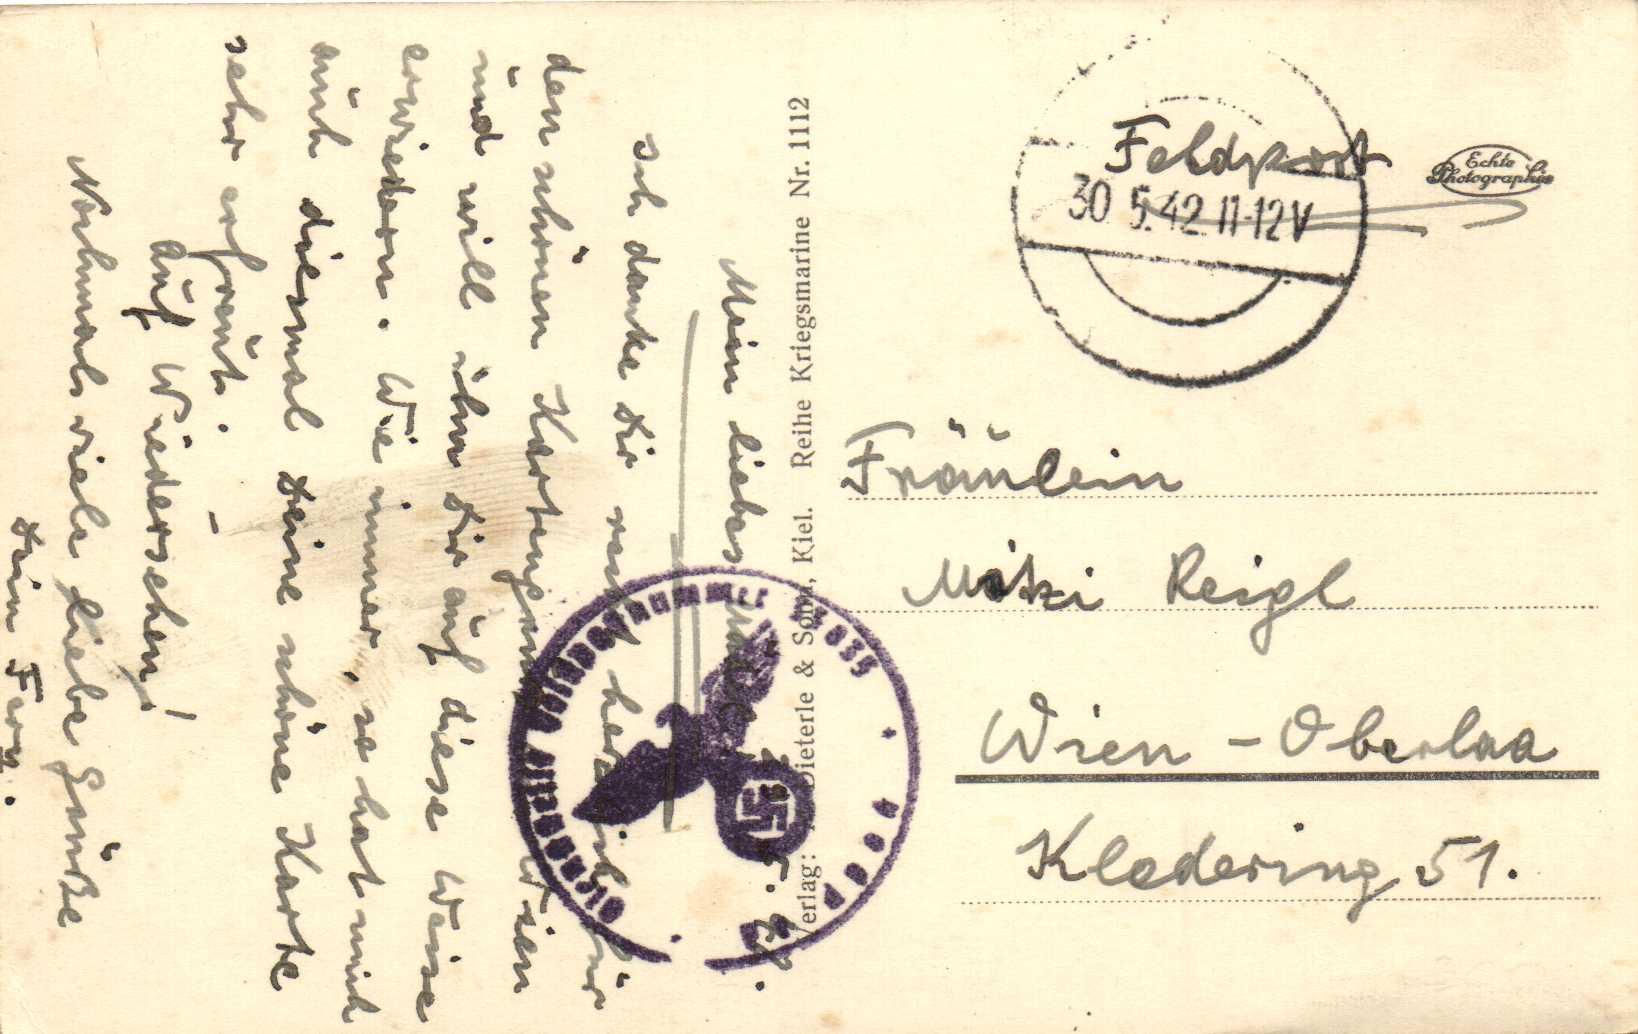 Mein liebes
Ich danke Dir recht herzlich für
den schönen Kartengruß Wien
und will ihn Dir auf diese Weise
erwiedern. Wie immer, so hat mich
auch diesmal Deine schöne Karte
sehr erfreut. –
Auf Wiedersehen!
Nochmals viele liebe Grüße
Dein Ferry.
Verlag: Dieterle & Sohn, Kiel. Reihe Kriegsmarine Nr. 1112
Feldpost
30.5.42.11-12V
Echte
Photographie
Fräulein
Mitzi Reigl
Wien - Oberlaa
Kledering 51.
Dienststelle Feldpostnummer